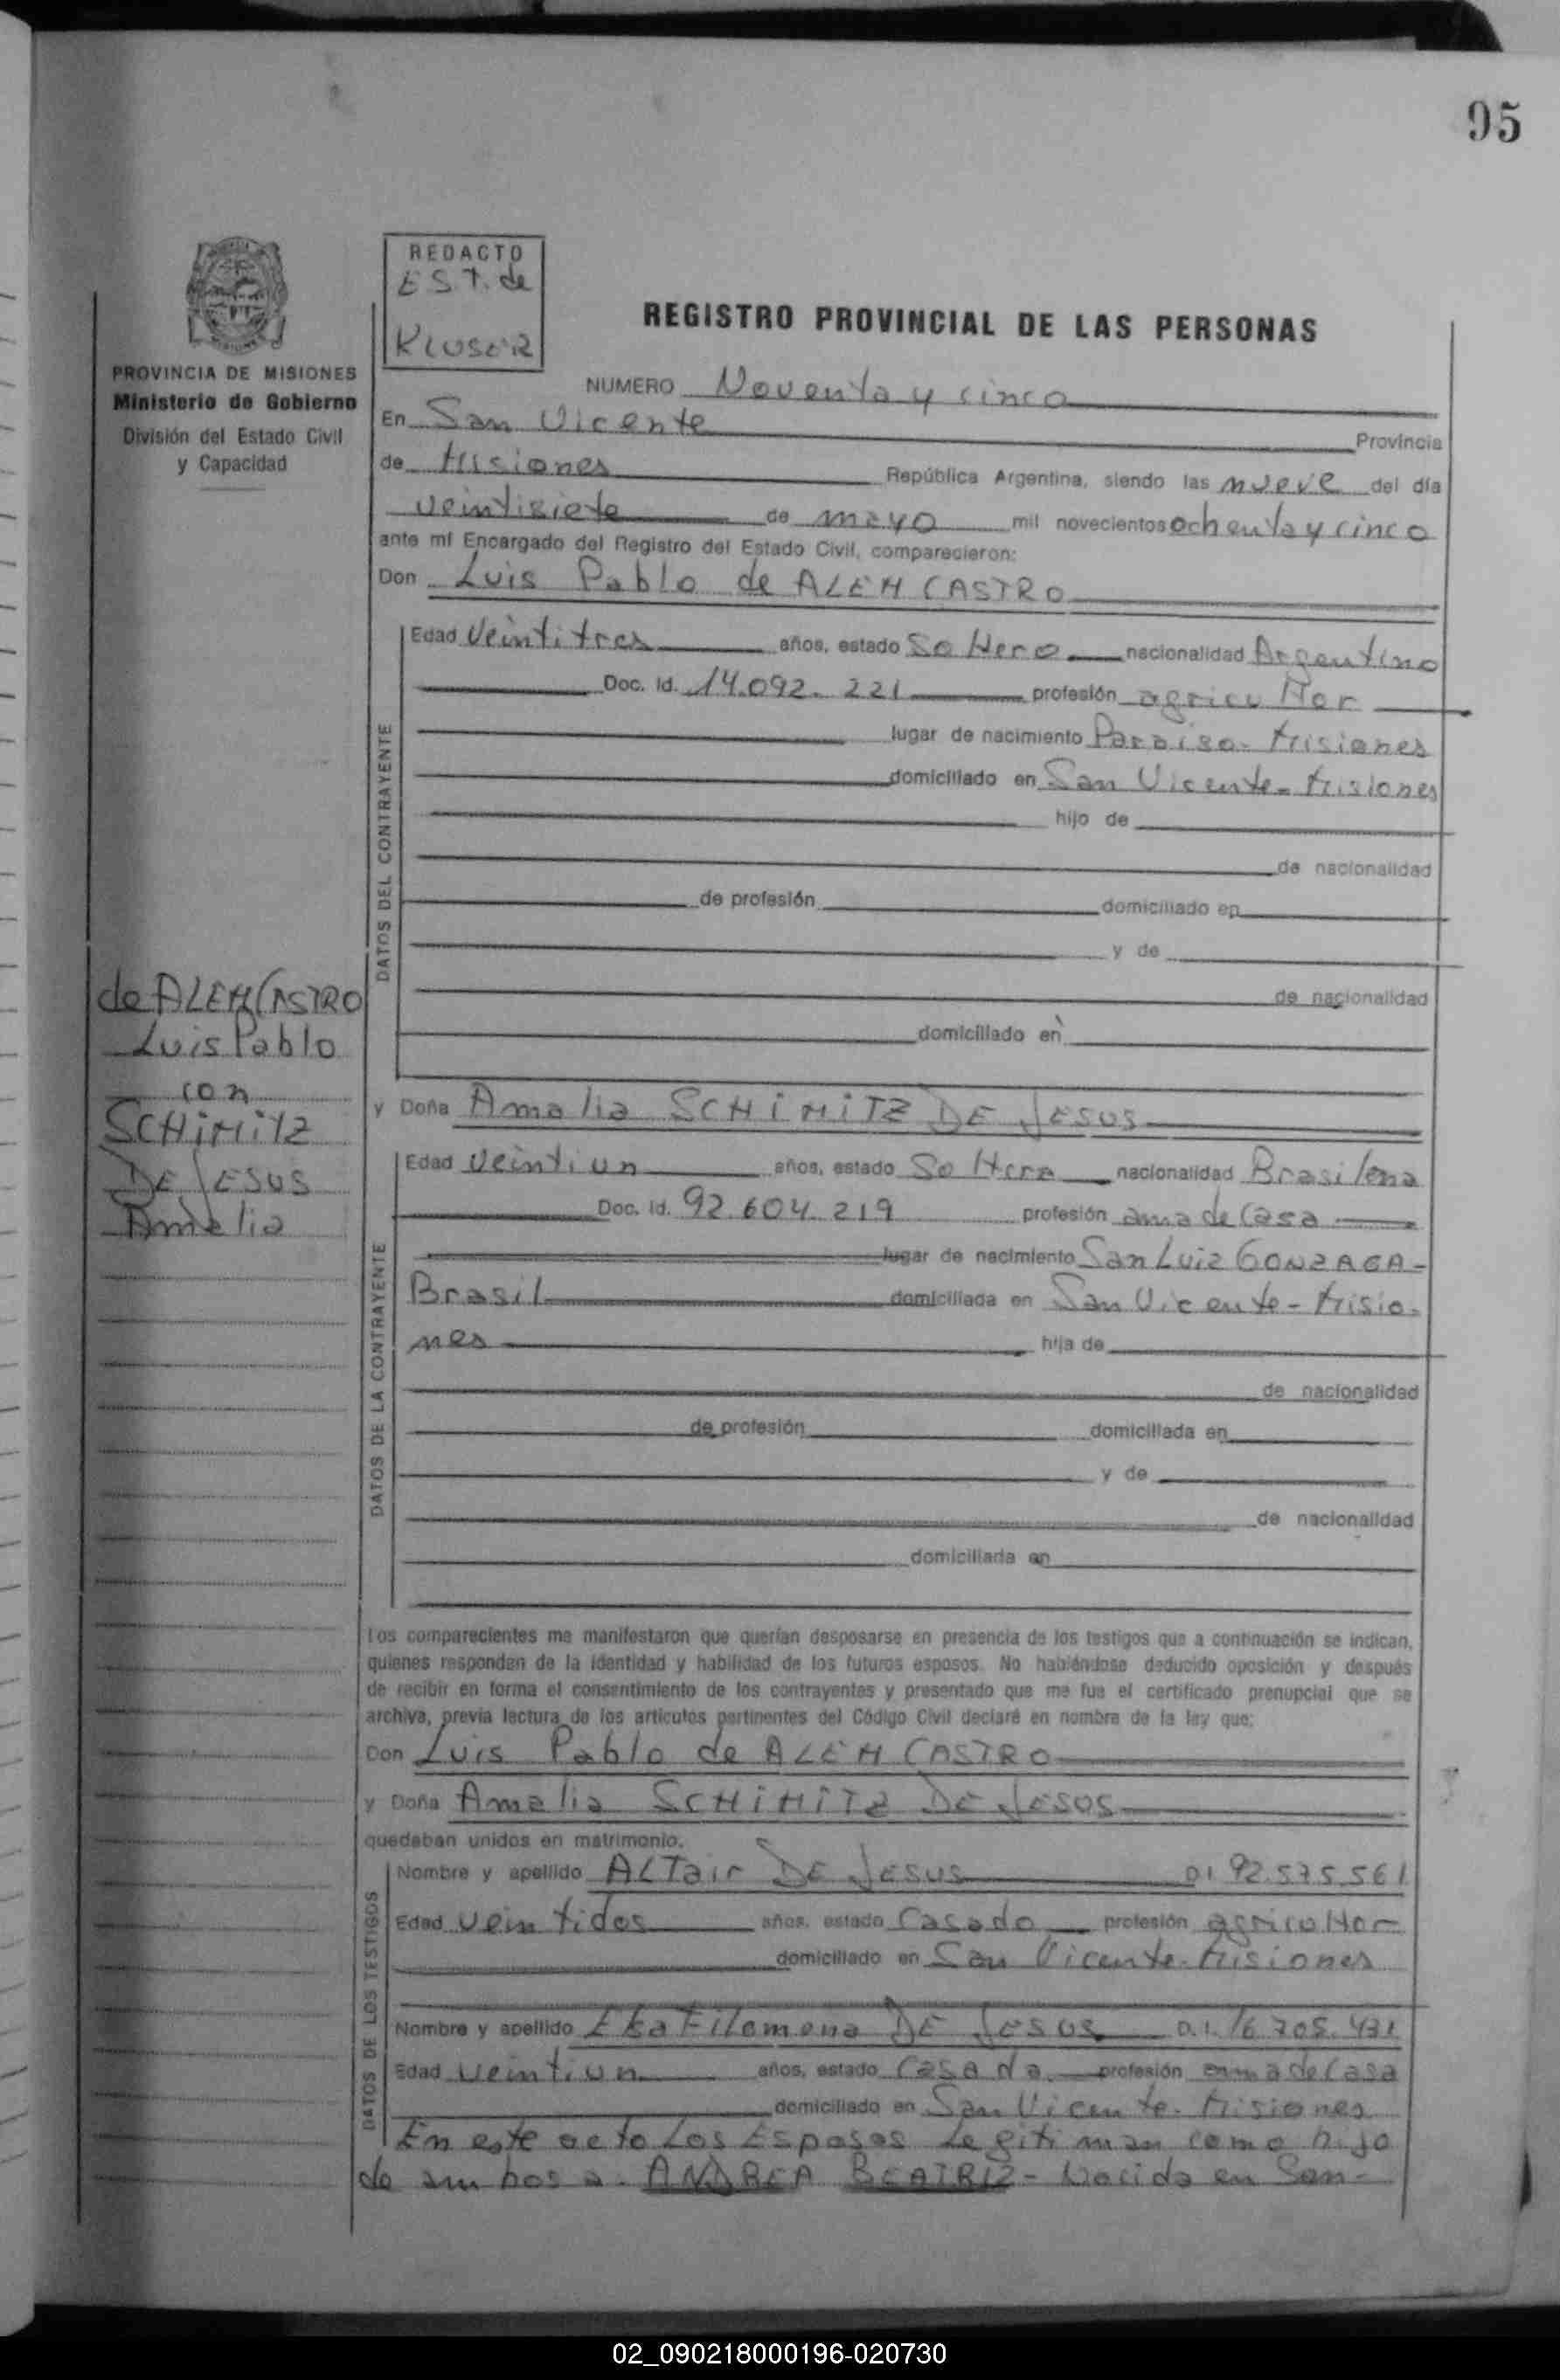 95
REDACTO
EST. de
KLUSER
REGISTRO PROVINCIAL DE LAS PERSONAS
PROVINCIA DE MISIONES
Ministerio de Gobierno
División del Estado Civil
y Capacidad
NUMERO Noventa y cinco
En San Vicente Provincia
de Misiones República Argentina, siendo las nueve del día
veintisiete de mayo mil novecientos ochenta y cinco
ante mí Encargado del Registro del Estado Civil, comparecieron:
Don Luis Pablo de ALEM CASTRO
DATOS DEL CONTRAYENTE
Edad Veintitres años, estado Soltero nacionalidad Argentino
Doc. Id. 14.092.221 profesión agricultor
lugar de nacimiento Paraiso - Misiones
domiciliado en San Vicente - Misiones
hijo de
de nacionalidad
de profesión domiciliado en
y de
de nacionalidad
domiciliado en
de ALEM CASTRO
Luis Pablo
con
SCHiMiTZ
DE JESUS
Amelia
y Doña Amalia SCHiMiTZ DE JESUS
DATOS DE LA CONTRAYENTE
Edad Veintiun años, estado Soltera nacionalidad Brasilena
Doc. Id. 92.604.219 profesión ama de Casa
lugar de nacimiento San Luiz GONZAGA -
Brasil domiciliada en San Vicente - Misio-
nes hija de
de nacionalidad
de profesión domiciliada en
y de
de nacionalidad
domiciliada en
Los comparecientes me manifestaron que querían desposarse en presencia de los testigos que a continuación se indican,
quienes responden de la identidad y habilidad de los futuros esposos. No habiéndose deducido oposición y después
de recibir en forma el consentimiento de los contrayentes y presentado que me fue el certificado prenupcial que se
archiva, previa lectura de los artículos pertinentes del Código Civil declaré en nombre de la ley que:
Don Luis Pablo de ALEM CASTRO
y Doña Amelia SCHiMiTZ DE JESOS
quedaban unidos en matrimonio.
DATOS DE LOS TESTIGOS
Nombre y apellido ALTair DE JESUS D.I 92.575.561
Edad Veintidos años, estado Casado profesión agricultor
domiciliado en San Vicente - Misiones
Nombre y apellido Elsa Filomena DE JESUS D.I. 16.705.431
Edad Veintiun años, estado Casada profesión ama de Casa
domiciliado en San Vicente - Misiones
En este acto Los Esposos Legitiman como hijo
de ambos a. ANDREA BEATRIZ - Nacida en San -
02_090218000196-020730